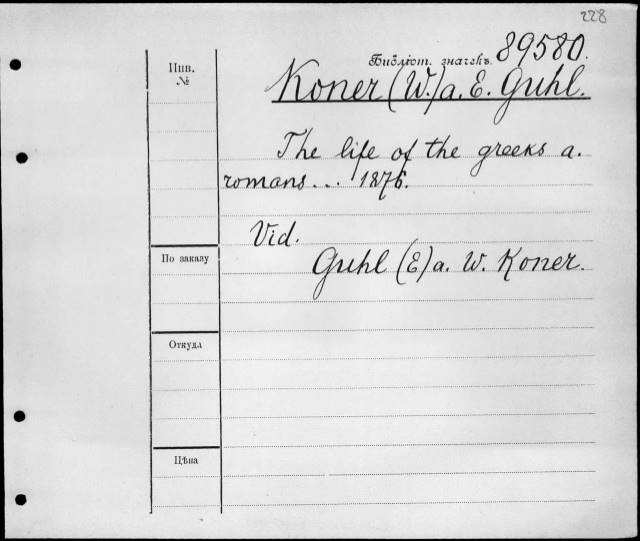 228
Библіот. значекъ. 89580.
Инв.
№
Koner (W.) a. E. Guhl.
The life of the greeks a.
romans... 1876.
Vid.
Guhl (E) a. W. Koner.
По заказу
Откуда
Цѣна